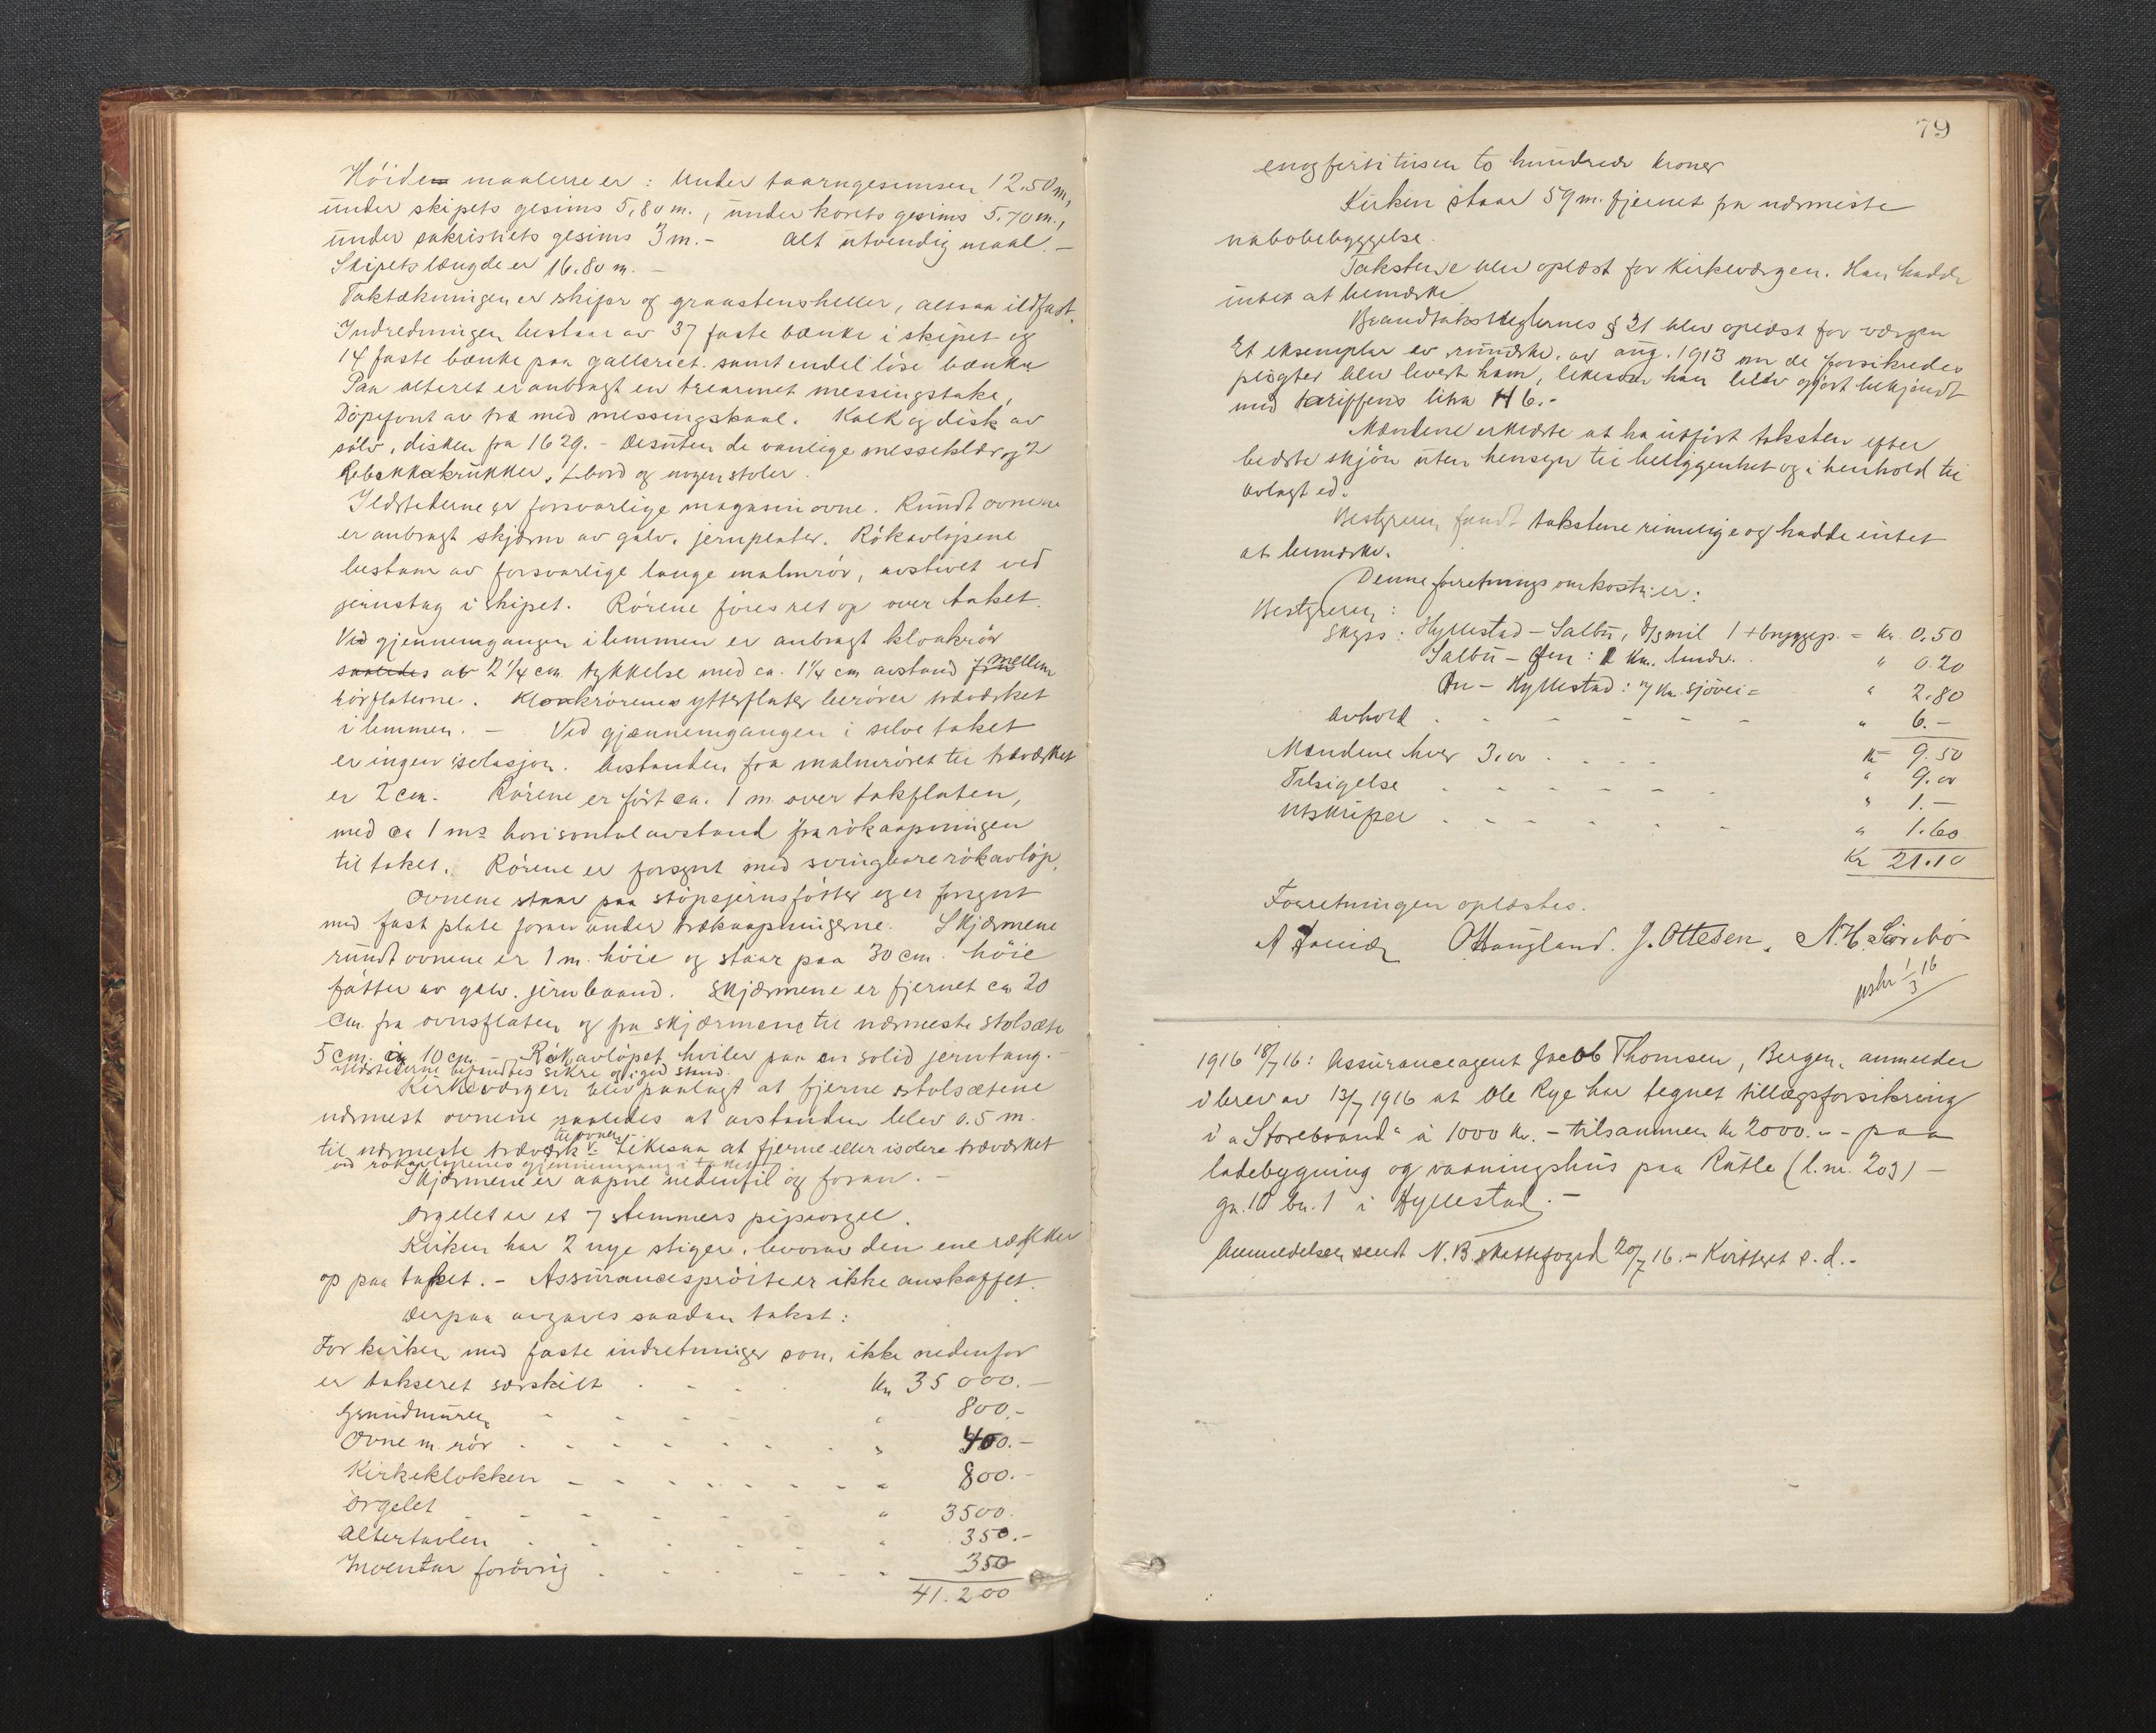 Höiden maalene er: Under taarngesimsen 12.50 m,
under skipets gesims 5,80 m., under korets gesims 5.70 m.,
under sakristiets gesims 3 m. - Alt utvendig maal. -
Skipets længde er 16.80 m. -
Taktækningen er skifer og graastensheller, altsaa ildfast.
Indredningen bestaar av 37 faste bænke i skipet og
14 faste bænke paa galleriet samt endel löse bænke
Paa alteret er anbragt en trearmet messingstake,
Döpefont av træ med messingskaal. Kalk og disk av
sölv, disken fra 1629. - Desuten de vanlige messeklær og 2
Rebekkakrukker, 1 bord og nogen stoler.
Ildstederne er forsvarlige magasinovne. Rundt ovnene
er anbragt skjærm av galv. jernplater. Rökavlöpene
bestaar av forsvarlige lange malmrör, avstivet ved
jernstag i skipet. Rörene föres ret op over taket.
Ved gjennemgangen i lemmen er anbragt kloakrör
saaledes av 2 1/4 cm. tykkelse med ca. 1 1/4 cm avstand fra mellem
rörflaterne. Kloakrörenes ytterflater berörer træværket
i lemmen. - Ved gjennemgangen i selve taket
er ingen isolasjon. Avstanden fra malmröret til træværket
er 2 cm. Rörene er fört ca. 1 m over takflaten,
med ca 1 m's horisontal avstand fra rökaapningen
til taket. Rörene er forsynt med svingbare rökavlöp.
Ovnene staar paa støpejernsfötter og er forsynt
med fast plate foran under trækaapningerne. Skjærmene
rundt ovnene er 1 m. höie og staar paa 30 cm. höie
fötter av galv. jernbaand. Skjærmene er fjernet ca 20
cm. fra ovnsflaten og fra skjærmene til nærmeste stolsæte
5 cm. à 10 cm. - Rökavlöpet hviler paa en solid jerntang. -
Ildstederne befandtes sikre og i god stand.
Kirkeværgen blev paalagt at fjerne stolsætene
nærmest ovnene saaledes at avstanden blev 0.5 m.
til ovnen
til nærmeste træværk. Likesaa at fjerne eller isolere træværket
ved rökavlöpenes gjennemgang i taket
Skjærmene er aapne nedentil og foran. -
Orgelet er et 7 stemmers pipeorgel.
Kirken har 2 nye stiger, hvorav den ene rækker
op paa taket. - Assurancespröite er ikke anskaffet.
Derpaa avgaves saadan takst:
For kirken med faste indretninger som ikke nedenfor
er takseret særskilt . . . . Kr 35 000. -
Grundmuren - - - - " 800. -
Ovne m. rör . . . . . . " 400. -
Kirkeklokken - - - - - 800. -
Orgelet - - - - - " 3500.
Altertavlen . . . . . " 350. -
Inventar forövrig . . . . - 350
41.200
79
enogförti tusen to hundrede kroner
Kirken staar 59 m. fjernet fra nærmeste
nabobebyggelse.
Takstene blev oplæst for kirkeværgen. Han hadde
intet at bemerke.
Brandtakstreglernes § 21 blev oplæst for værgen
Et eksemplar av rundskr. av aug. 1913 om de forsikredes
plögter blev levert ham, likesom han blev gjort bekjendt
med tariffens litra H 6. -
Mændene erklærte at ha utfört taksten efter
bedste skjön uten hensyn til beliggenhet og i henhold til
avlagt ed.
Bestyreren fandt takstene rimelige og hadde intet
at bemerke.
Denne forretnings omkostn. er:
Bestyreren:
Skyss: Hyllestad - Salbu, 8/3 mil 1 + bryggep. = kr. 0.50
Salbu - Øen: 2 km. landv. " 0.20
Øen - Hyllestad: 7 km. sjövei = " 2.80
Avhold . - - - - - " 6. -
Kr 9.50
Mændene hver 3.00 . . . . " 9.00
Tilsigelse . - - - - . " 1. -
Utskrifter . - - - - - " 1.60
Kr 21.10
Forretningen oplæstes.
O Haugland. J. Ottesen. N. H. Sörebö
uskr 1/3 16
1916 18/7 16: Assuranceagent Jacob Thomsen, Bergen, anmelder
i brev av 13/7 1916 at Ole Rye har tegnet tillægsforsikring
i "Storebrand" à 1000 kr. - tilsammen kr 2000. - - paa
ladebygning og vaaningshus paa Rutle (l.nr. 203) -
gn. 10 bn. 1 i Hyllestad. -
Anmeldelsen sendt N. B. skattefoged 20/7 16. - Kvittert s. d. -